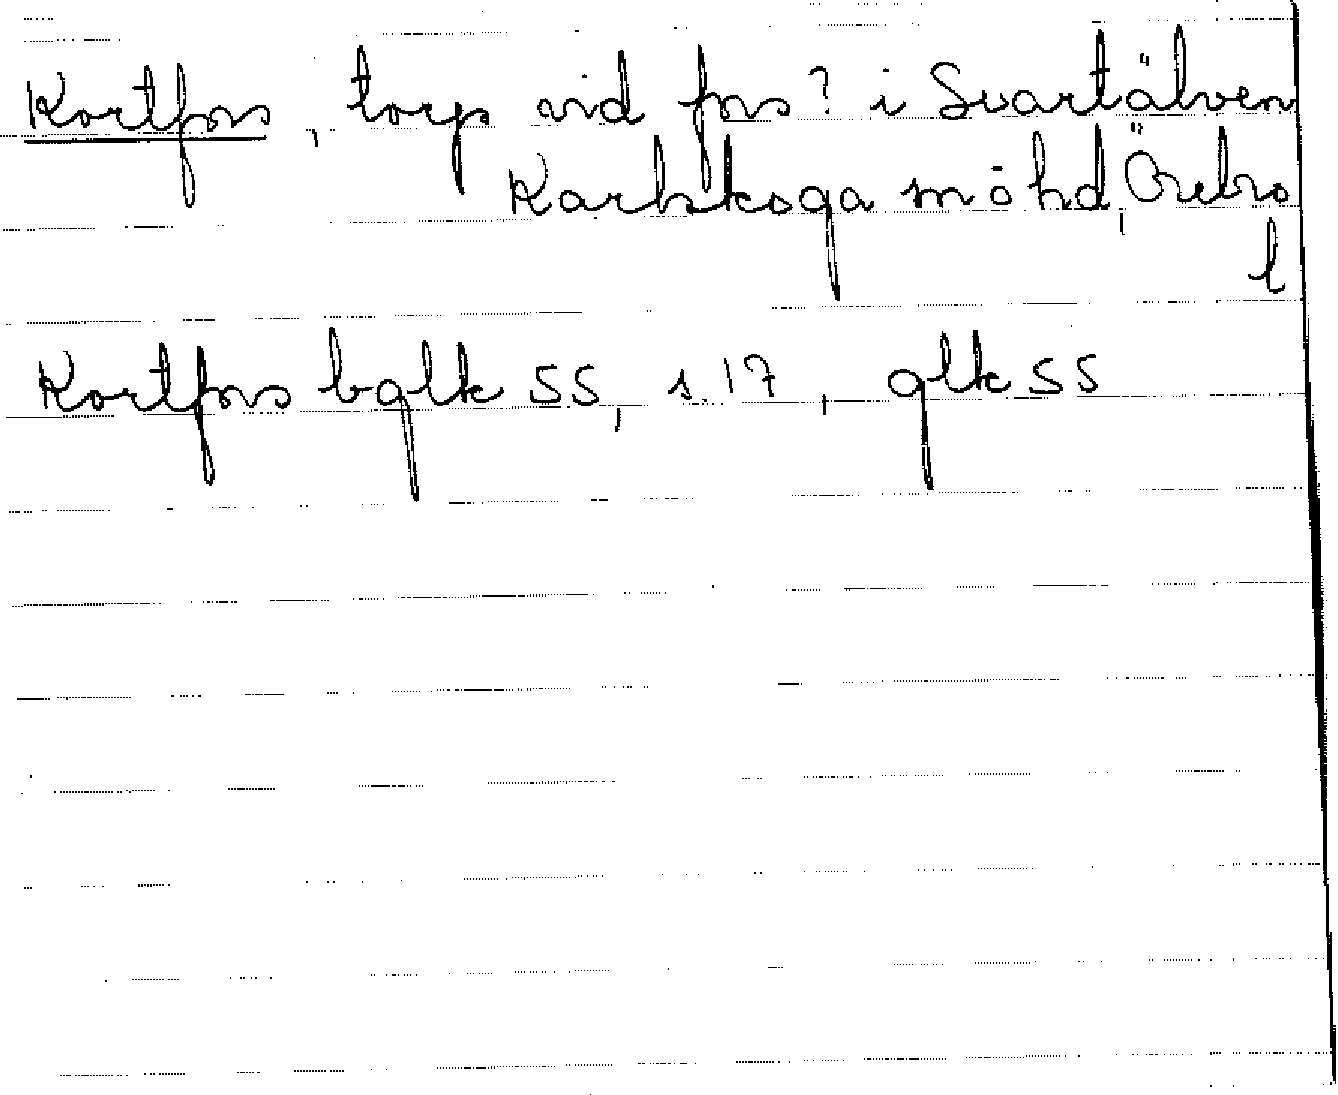 Kortfors, torp vid fors? i Svartälven
Karlskoga möhd, Örebro
l
Kortfors bglk 55, s. 17, glk 55